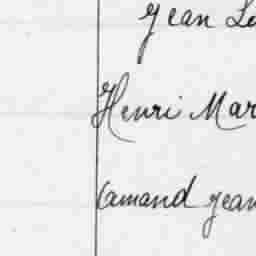 Jean Lo
Henri Mar
Camand Jean